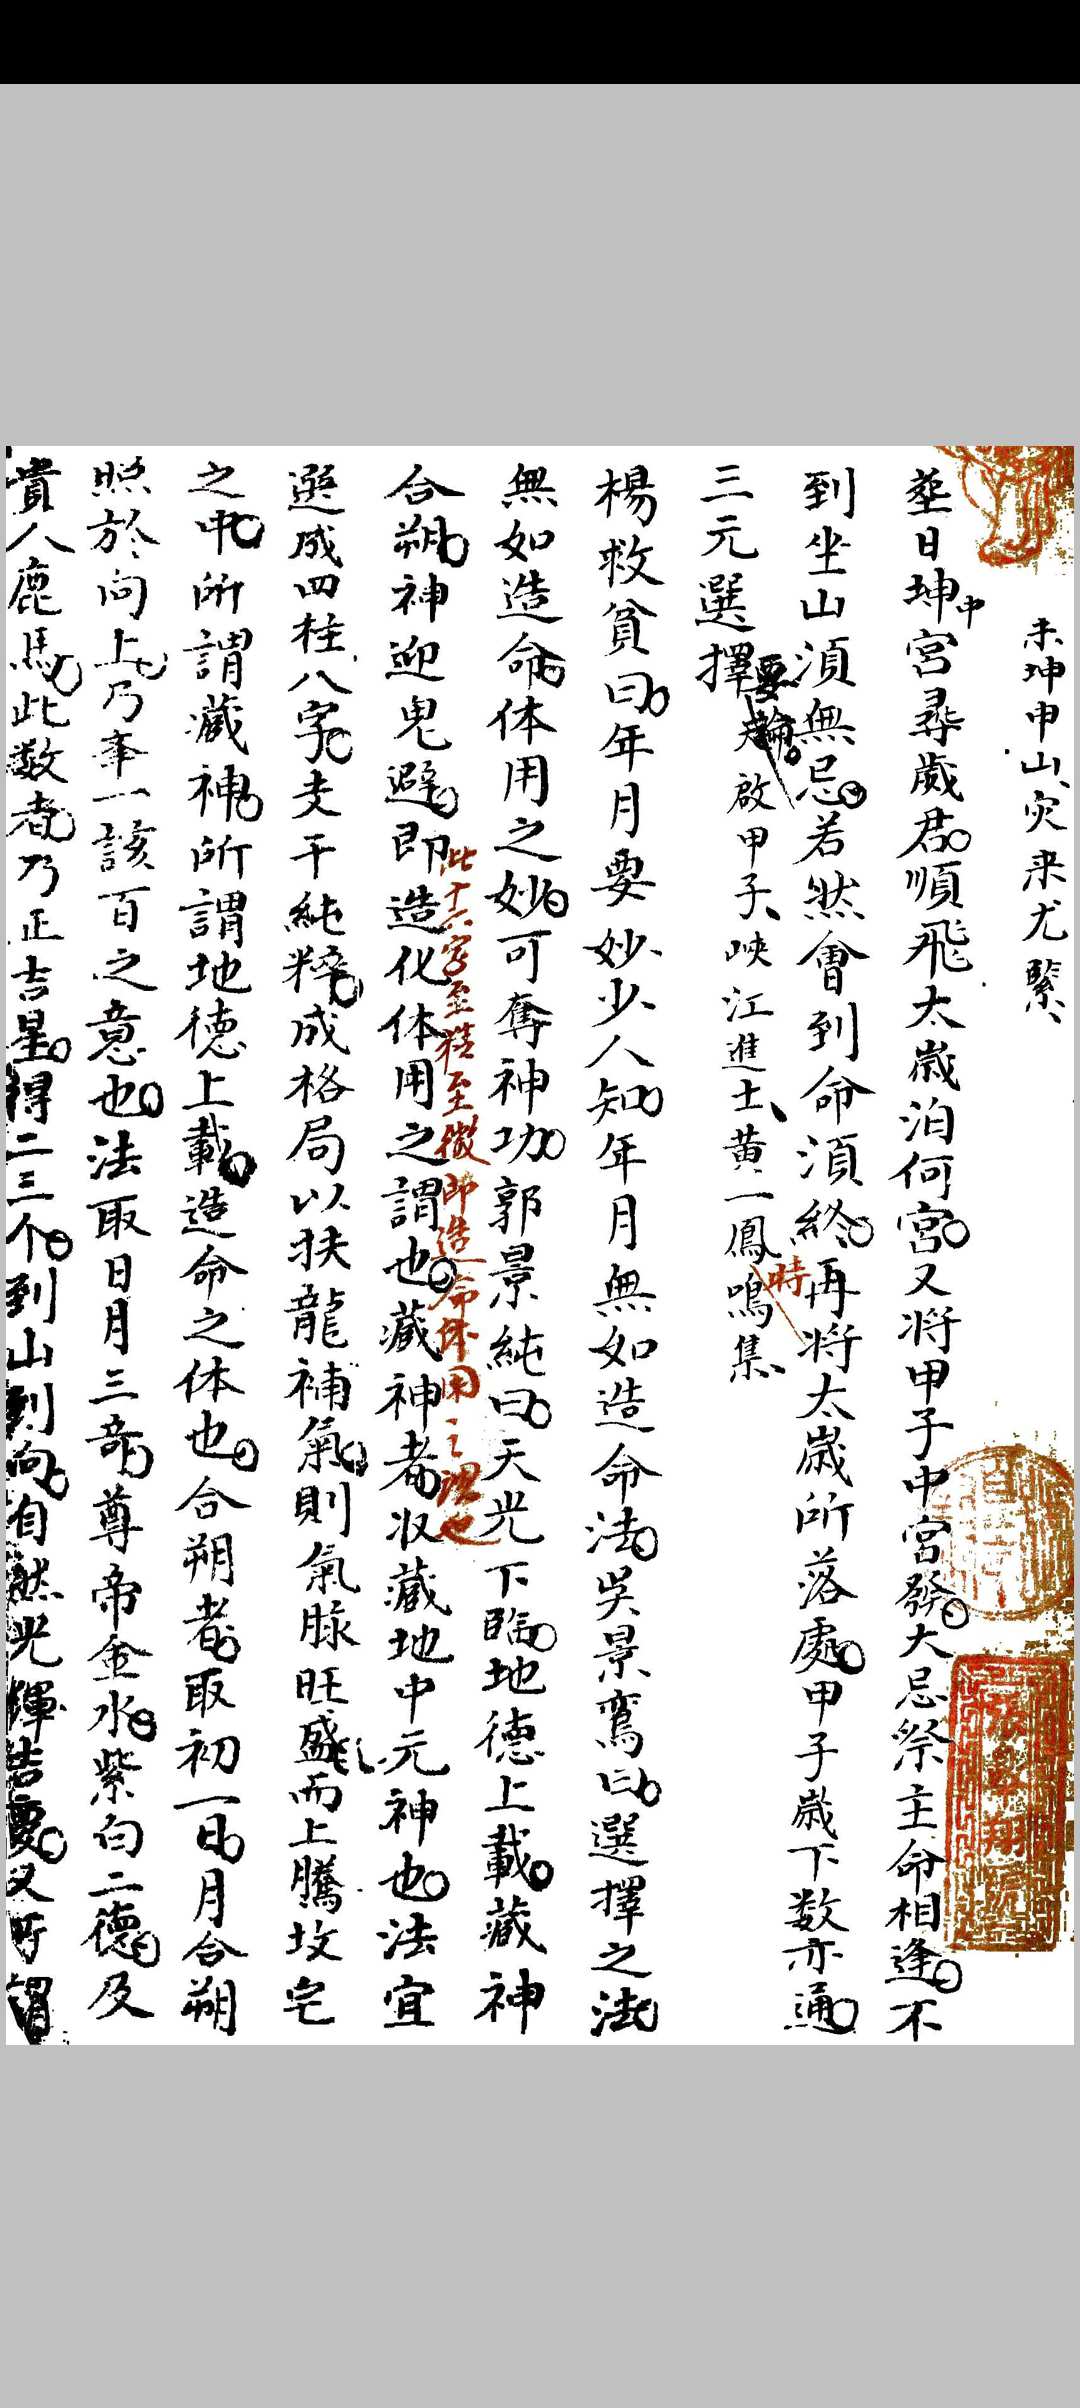 未坤申山災来尤緊
塟日坤中宮尋歲君順飛太歲泊何宮又将甲子中宮發大忌祭主命相逢不
到坐山須無忌若然會到命須終再将太歲所落處甲子歲下数亦通
三元選擇要論 天啟甲子峽江進士黄一鳳鳴時集
楊救貧曰年月要妙少人知年月無如造命法吳景鸞曰選擇之法
無如造命体用之妙可奪神功郭景純曰天光下臨地德上載藏神
合朔神迎鬼避即造化体用之謂也藏神者収藏地中元神也法宜
此十六字至精至微即造命体用之理也
選成四柱八字支干純粹成格局以扶龍補氣則氣脉旺盛而上騰坟宅
之中所謂藏神所謂地德上載造命之体也合朔者取初一日月合朔
照於向上乃舉一該百之意也法取日月三竒尊帝金水紫白二德及
貴人鹿馬此数者乃正吉星得二三个到山到向自然光輝吉慶又所謂